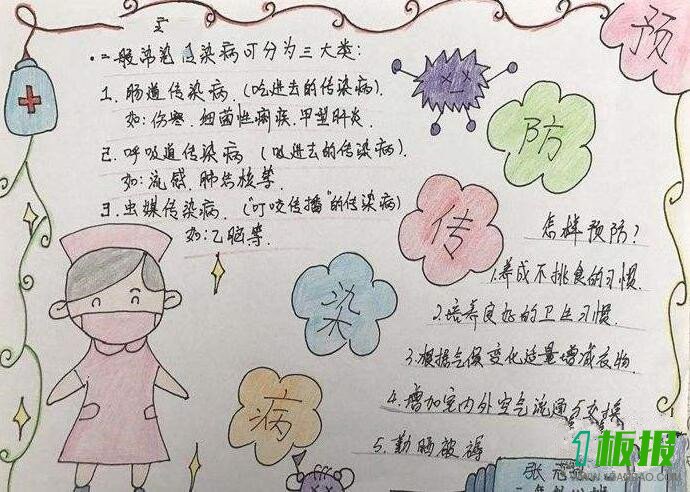 预
防
传
染
病
一般传染病可分为三大类:
1. 肠道传染病.(吃进去的传染病).
如:伤寒.细菌性痢疾.甲型肝炎.
2. 呼吸道传染病(吸进去的传染病).
如:流感.肺结核等.
3. 虫媒传染病.("叮咬传播"的传染病)
如:乙脑等.
怎样预防?
1.养成不挑食的习惯.
2.培养良好的卫生习惯.
3.根据气候变化适量增减衣物.
4.增加室内外空气流通与交换
5.勤晒被褥
张志
1板报